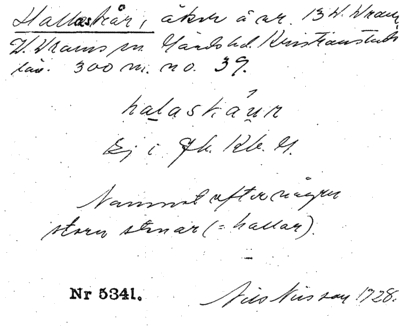 Hallaskår, åker å ar. 13 V. Vram
V. Vrams sn. Gärds hd. Kristianstads
län. 300 m. no. 39.
halaskåur
Ej i Jb. Kb. G.
Namnet efter några
stora stenar (= hallar).
Nr 5341.
Nils Nilsson 1928.